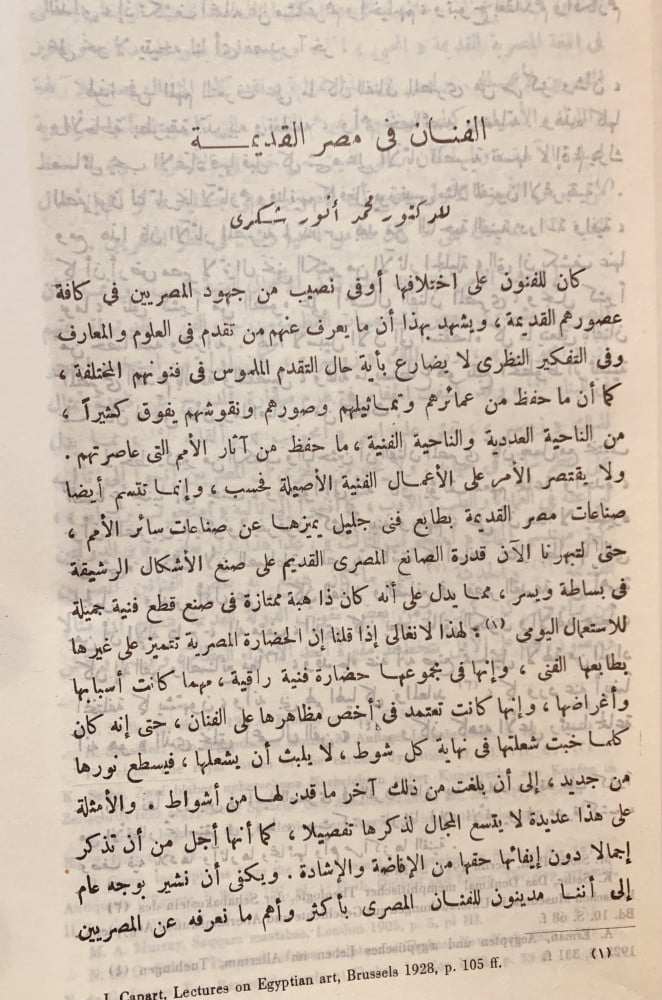 الفنــان فى مصر القديمــــة
للدكتور محمد أنور شكرى
كان للفنون على اختلافها أوفى نصيب من جهود المصريين فى كافة
عصورهم القديمة ، ويشهد بهذا أن ما يعرف عنهم من تقدم فى العلوم والمعارف
وفى التفكير النظرى لا يضارع بأية حال التقدم الملموس فى فنونهم المختلفة ،
كما أن ما حفظ من عمائرهم وتماثيلهم وصورهم ونقوشهم يفوق كثيراً ،
من الناحية العددية والناحية الفنية ، ما حفظ من آثار الأمم التى عاصرتهم .
ولا يقتصر الأمر على الأعمال الفنية الأصيلة فحسب ، وإنما تتسم أيضا
صناعات مصر القديمة بطابع فنى جليل يميزها عن صناعات سائر الأمم ،
حتى لتبهرنا الآن قدرة الصانع المصرى القديم على صنع الأشكال الرشيقة
فى بساطة ويسر ، مما يدل على أنه كان ذا هبة ممتازة فى صنع قطع فنية جميلة
للاستعمال اليومى (١) . لهذا لا نغالى إذا قلنا إن الحضارة المصرية تتميز على غيرها
بطابعها الفنى ، وإنها فى مجموعها حضارة فنية راقية ، مهما كانت أسبابها
وأغراضها ، وإنها كانت تعتمد فى أخص مظاهرها على الفنان ، حتى إنه كان
كلما خبت شعلتها فى نهاية كل شوط ، لا يلبث أن يشعلها ، فيسطع نورها
من جديد ، إلى أن بلغت من ذلك آخر ما قدر لها من أشواط . والأمثلة
على هذا عديدة لا يتسع المجال لذكرها تفصيلا ، كما أنها أجل من أن تذكر
إجمالا دون إيفائها حقها من الإفاضة والإشادة . ويكفى أن نشير بوجه عام
إلى أننا مدينون للفنان المصرى بأكثر وأهم ما نعرفه عن المصريين
(١)
J. Capart, Lectures on Egyptian art, Brussels 1928, p. 105 ff.